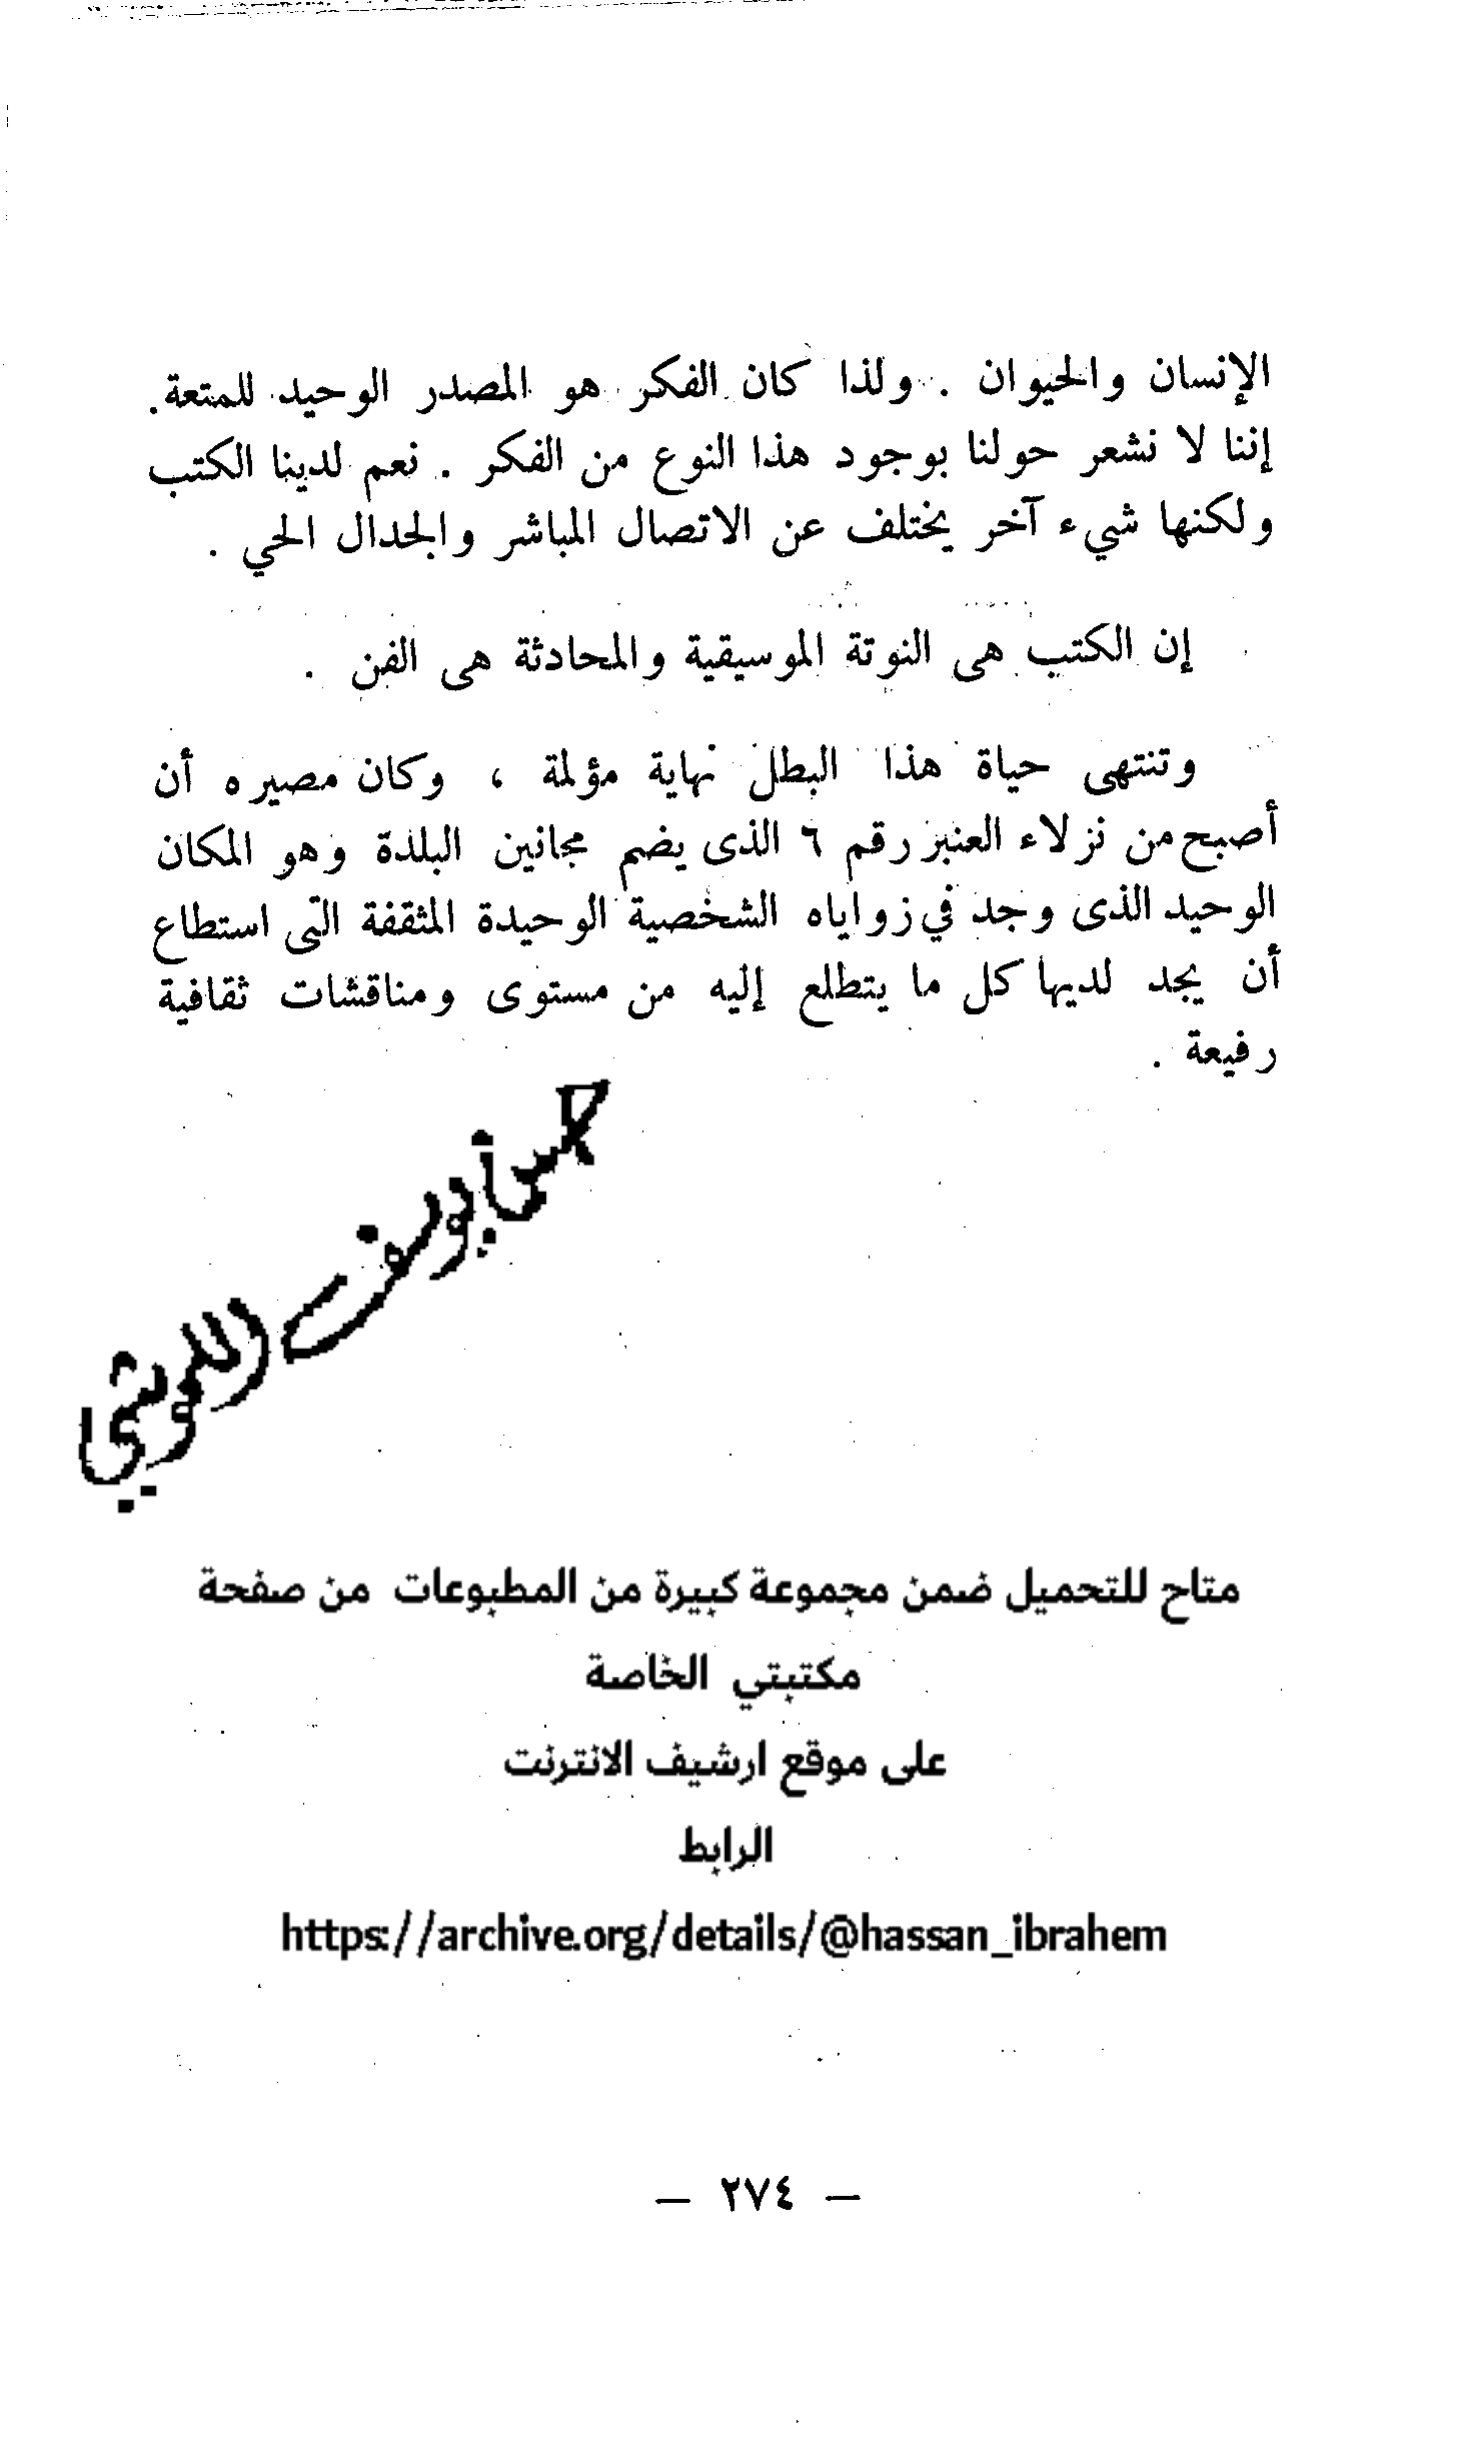 الإنسان والحيوان . ولذا كان الفكر هو المصدر الوحيد للمتعة.
إننا لا نشعر حولنا بوجود هذا النوع من الفكر . نعم لدينا الكتب
ولكنها شيء آخر يختلف عن الاتصال المباشر والجدال الحي .
إن الكتب هى النوتة الموسيقية والمحادثة هى الفن .
وتنتهى حياة هذا البطل نهاية مؤلمة ، وكان مصيره أن
أصبح من نزلاء العنبر رقم ٦ الذى يضم مجانين البلدة وهو المكان
الوحيد الذى وجد في زواياه الشخصية الوحيدة المثقفة التى استطاع
أن يجد لديها كل ما يتطلع إليه من مستوى ومناقشات ثقافية
رفيعة .
متاح للتحميل ضمن مجموعة كبيرة من المطبوعات من صفحة
مكتبتي الخاصة
على موقع ارشيف الانترنت
الرابط
https://archive.org/details/@hassan_ibrahem
— ٢٧٤ —